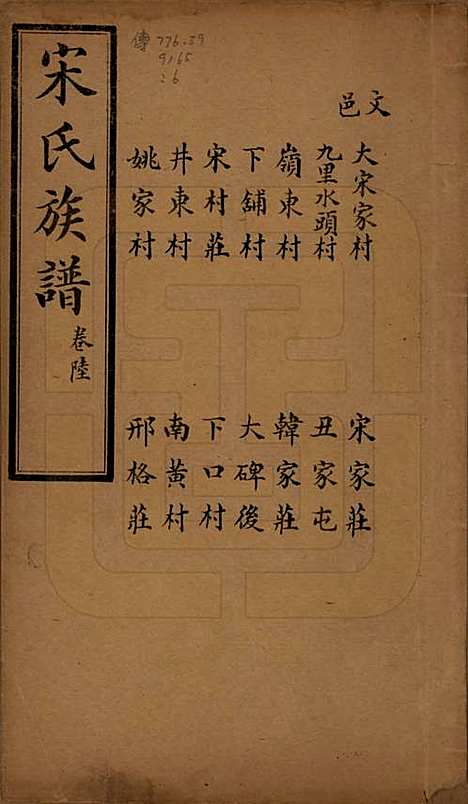 文邑
大宋家村
宋家莊
九里水頭村
丑家屯
嶺東村
韓家莊
下舖村
大碑後
宋村莊
下口村
井東村
南黃村
姚家村
邢格莊
宋氏族譜
卷陸
傳 776.59
9165
26